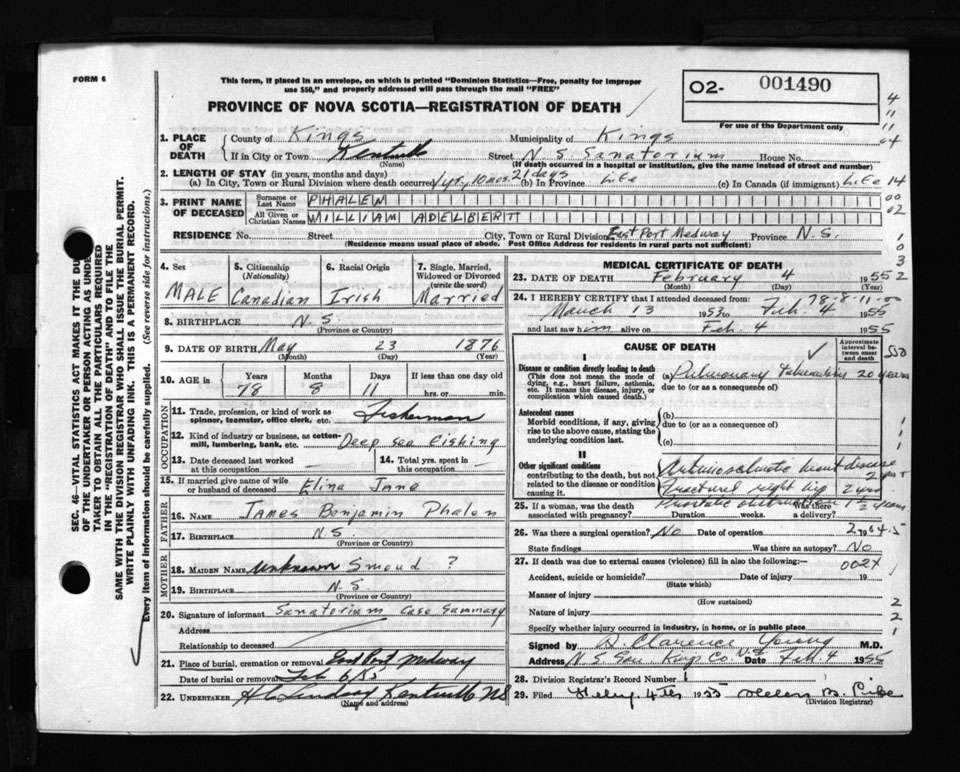 FORM 6
This form, if placed in an envelope, on which is printed "Dominion Statistics—Free, penalty for improper
use $50," and properly addressed will pass through the mail "FREE"
PROVINCE OF NOVA SCOTIA—REGISTRATION OF DEATH
O2- 001490
For use of the Department only
4
11
11
04
14
00
02
1
0
3
2
SEC. 46—VITAL STATISTICS ACT MAKES IT THE DU
OF THE UNDERTAKER OR PERSON ACTING AS UNDE
TAKER TO OBTAIN ALL THE PARTICULARS REQUIRED
IN THE "REGISTRATION OF DEATH" AND TO FILE THE
SAME WITH THE DIVISION REGISTRAR WHO SHALL ISSUE THE BURIAL PERMIT.
WRITE PLAINLY WITH UNFADING INK. THIS IS A PERMANENT RECORD.
Every item of information should be carefully supplied. (See reverse side for instructions.)
1. PLACE OF DEATH County of Kings Municipality of Kings
If in City or Town Kentville Street N S Sanatorium House No.
(Name) (If death occurred in a hospital or institution, give the name instead of street and number)
2. LENGTH OF STAY (in years, months and days)
(a) In City, Town or Rural Division where death occurred 1 yr, 10 mos. 21 days (b) In Province Life (c) In Canada (if immigrant) Life
3. PRINT NAME OF DECEASED Surname or Last Name PHALEN
All Given or Christian Names WILLIAM ADELBERT
RESIDENCE No. Street City, Town or Rural Division East Port Medway Province N.S.
(Residence means usual place of abode. Post Office Address for residents in rural parts not sufficient)
4. Sex MALE
5. Citizenship (Nationality) Canadian
6. Racial Origin Irish
7. Single, Married, Widowed or Divorced (write the word) Married
8. BIRTHPLACE N.S.
(Province or Country)
9. DATE OF BIRTH May 23 1876
(Month) (Day) (Year)
10. AGE in Years Months Days If less than one day old
78 8 11 hrs. or min.
OCCUPATION
11. Trade, profession, or kind of work as spinner, teamster, office clerk, etc. Fisherman
12. Kind of industry or business, as cotton-mill, lumbering, bank, etc. Deep sea Fishing
13. Date deceased last worked at this occupation
14. Total yrs. spent in this occupation
15. If married give name of wife or husband of deceased Elina Jane
FATHER
16. NAME James Benjamin Phalen
17. BIRTHPLACE N.S.
(Province or Country)
MOTHER
18. MAIDEN NAME Unknown Smoud ?
19. BIRTHPLACE N.S
(Province or Country)
20. Signature of informant Sanatorium Case Summary
Address
Relationship to deceased
21. Place of burial, cremation or removal East Port Medway
Date of burial or removal Feb 6/55
22. UNDERTAKER Lindsay Kentville NS
(Name and address)
MEDICAL CERTIFICATE OF DEATH
23. DATE OF DEATH February 4 1955
(Month) (Day) (Year)
78-8-11-00
24. I HEREBY CERTIFY that I attended deceased from:
March 13 1953 to Feb. 4 1955
and last saw him alive on Feb. 4 1955
CAUSE OF DEATH
Approximate interval between onset and death
550
I
Disease or condition directly leading to death
(This does not mean the mode of dying, e.g., heart failure, asthenia, etc. It means the disease, injury, or complication which caused death.)
(a) Pulmonary Tuberculosis 20 years
due to (or as a consequence of)
Antecedent causes
Morbid conditions, if any, giving rise to the above cause, stating the underlying condition last.
(b)
due to (or as a consequence of)
(c)
II
Other significant conditions
contributing to the death, but not related to the disease or condition causing it.
Arteriosclerotic heart disease
Fractured right hip 2 yrs
Prostatic obstruction
25. If a woman, was the death associated with pregnancy? Duration weeks. Was there a delivery?
26. Was there a surgical operation? No Date of operation
State findings Was there an autopsy? No
27. If death was due to external causes (violence) fill in also the following:—
002X
Accident, suicide or homicide? Date of injury 19
(State which)
Manner of injury
(How sustained)
Nature of injury
Specify whether injury occurred in industry, in home, or in public place
Signed by D. Clarence Young M.D.
Address N. S. San. Kings Co. N.S. Date Feb. 4 1955
28. Division Registrar's Record Number
29. Filed Feby. 4th 1955 Helen B.
(Division Registrar)